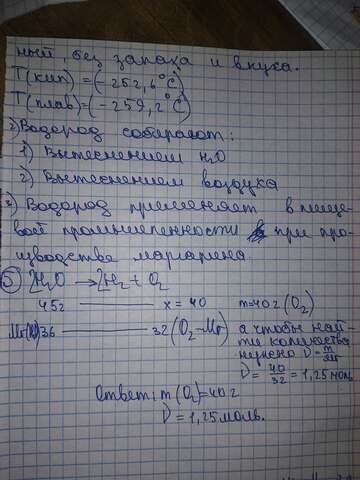 ный, без запаха и вкуса.
T(кип) = (-252,6°C)
T(плав) = (-259,2°C)
2) Водород собирают:
1) Вытеснением H₂O
2) Вытеснением воздуха
3) Водород применяет в пище-
вой промышленности при про-
изводстве маргарина.
5) 2H₂O → 2H₂ + O₂
45г — x = 40 m=40г (O₂)
36 — 32 (O₂-Mr) а чтобы най-
ти количество
нужно ν = m/Mr
ν = 40/32 = 1,25 моль
Ответ: m(O₂) = 40г
ν = 1,25 моль.